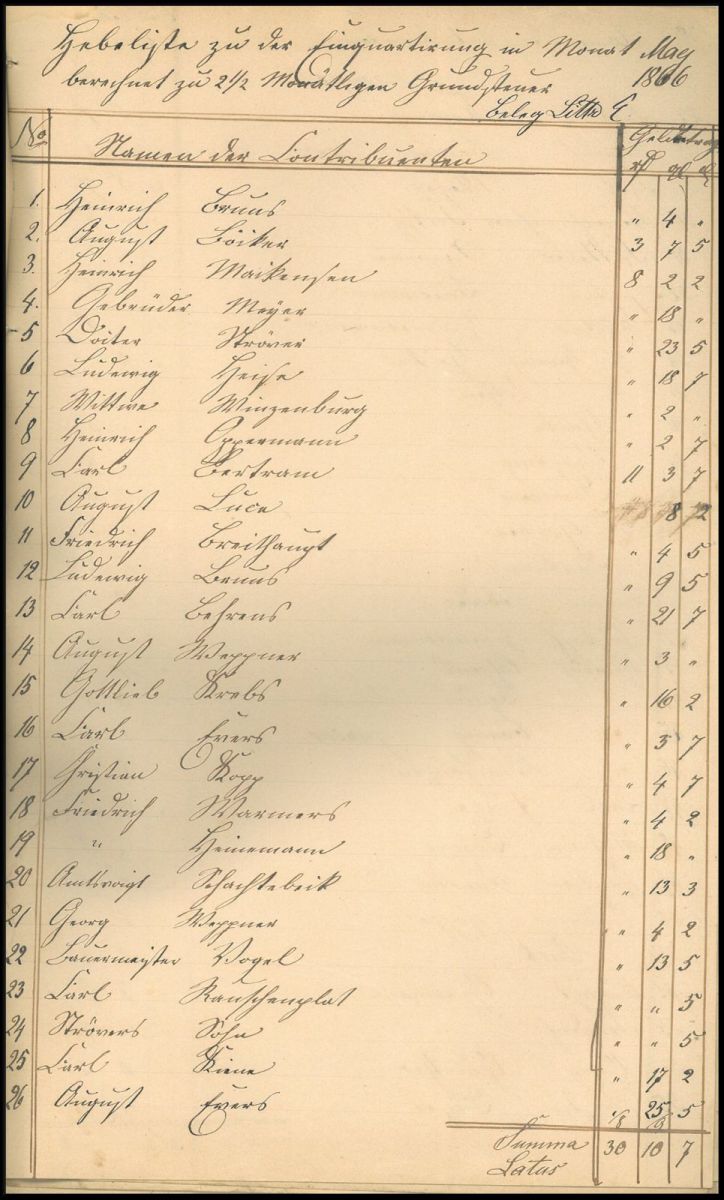 Hebeliste zu der Einquartirung in Monat May
berechnet zu 2 1/2 Monatligen Grundsteuer 1866
Beleg Littr E.
No Namen der Contribuenten Geldbetrag
rf gl
1. Heinrich Bruns " 4 "
2. August Böiker 3 7 5
3. Heinrich Maikensen 8 2 2
4. Gebrüder Meyer " 18 "
5 Ströver " 23 5
6 Ludewig Heise " 18 7
7 Wittwe Winzenburg " 2 "
8 Heinrich Oppermann " 2 7
9 Carl Bertram 11 3 7
10 August Luce 8 2
11 Friedrich Breithaupt " 4 5
12 Ludewig Bruns " 9 5
13 Carl Behrens " 21 7
14 August Weppner " 3 "
15 Gottlieb Krebs " 16 2
16 Carl Evers " 3 7
17 Christian Kopp " 4 7
18 Friedrich Warmers " 4 2
19 " Heinemann " 18 "
20 Amtsvoigt Schachtebeik " 13 3
21 Georg Weppner " 4 2
22 Bauermeister Vogel " 13 5
23 Carl Rauschenplat " " 5
24 Strövers Sohn " " 5
25 Carl Kiene " 17 2
26 August Evers 25 5
Summa 30 10 7
Latus